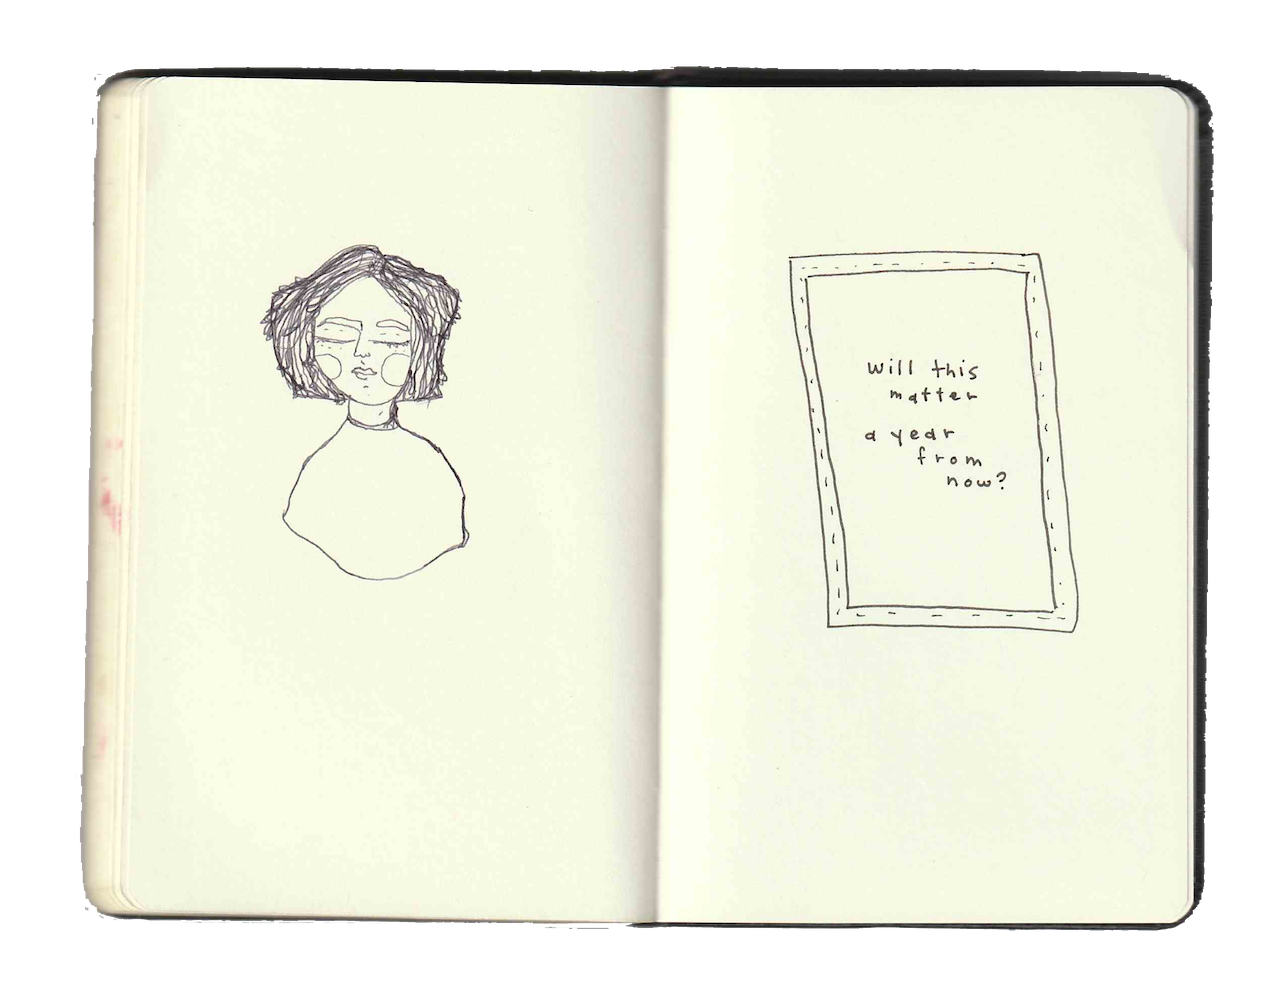 will this
matter
a year
from
now?